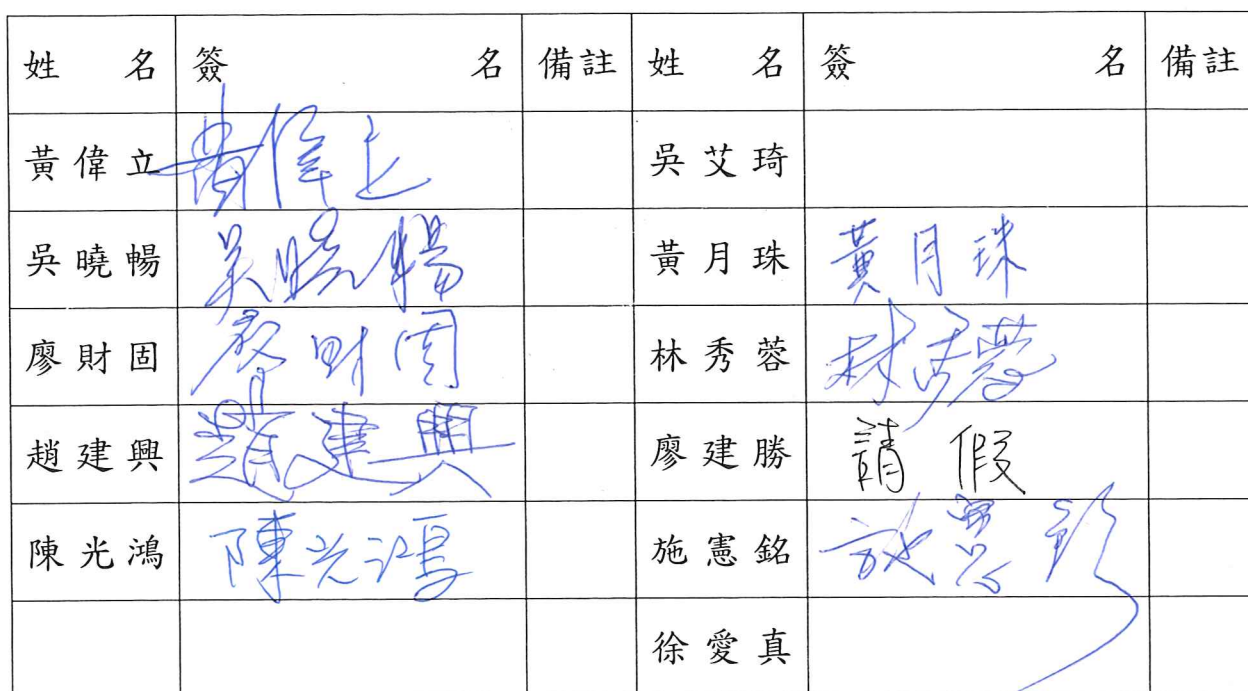 姓名 簽名 備註 姓名 簽名 備註
黃偉立 黃偉立 吳艾琦
吳曉暢 吳曉暢 黃月珠 黃月珠
廖財固 廖財固 林秀蓉 林秀蓉
趙建興 趙建興 廖建勝 請假
陳光鴻 陳光鴻 施憲銘 施憲銘
徐愛真